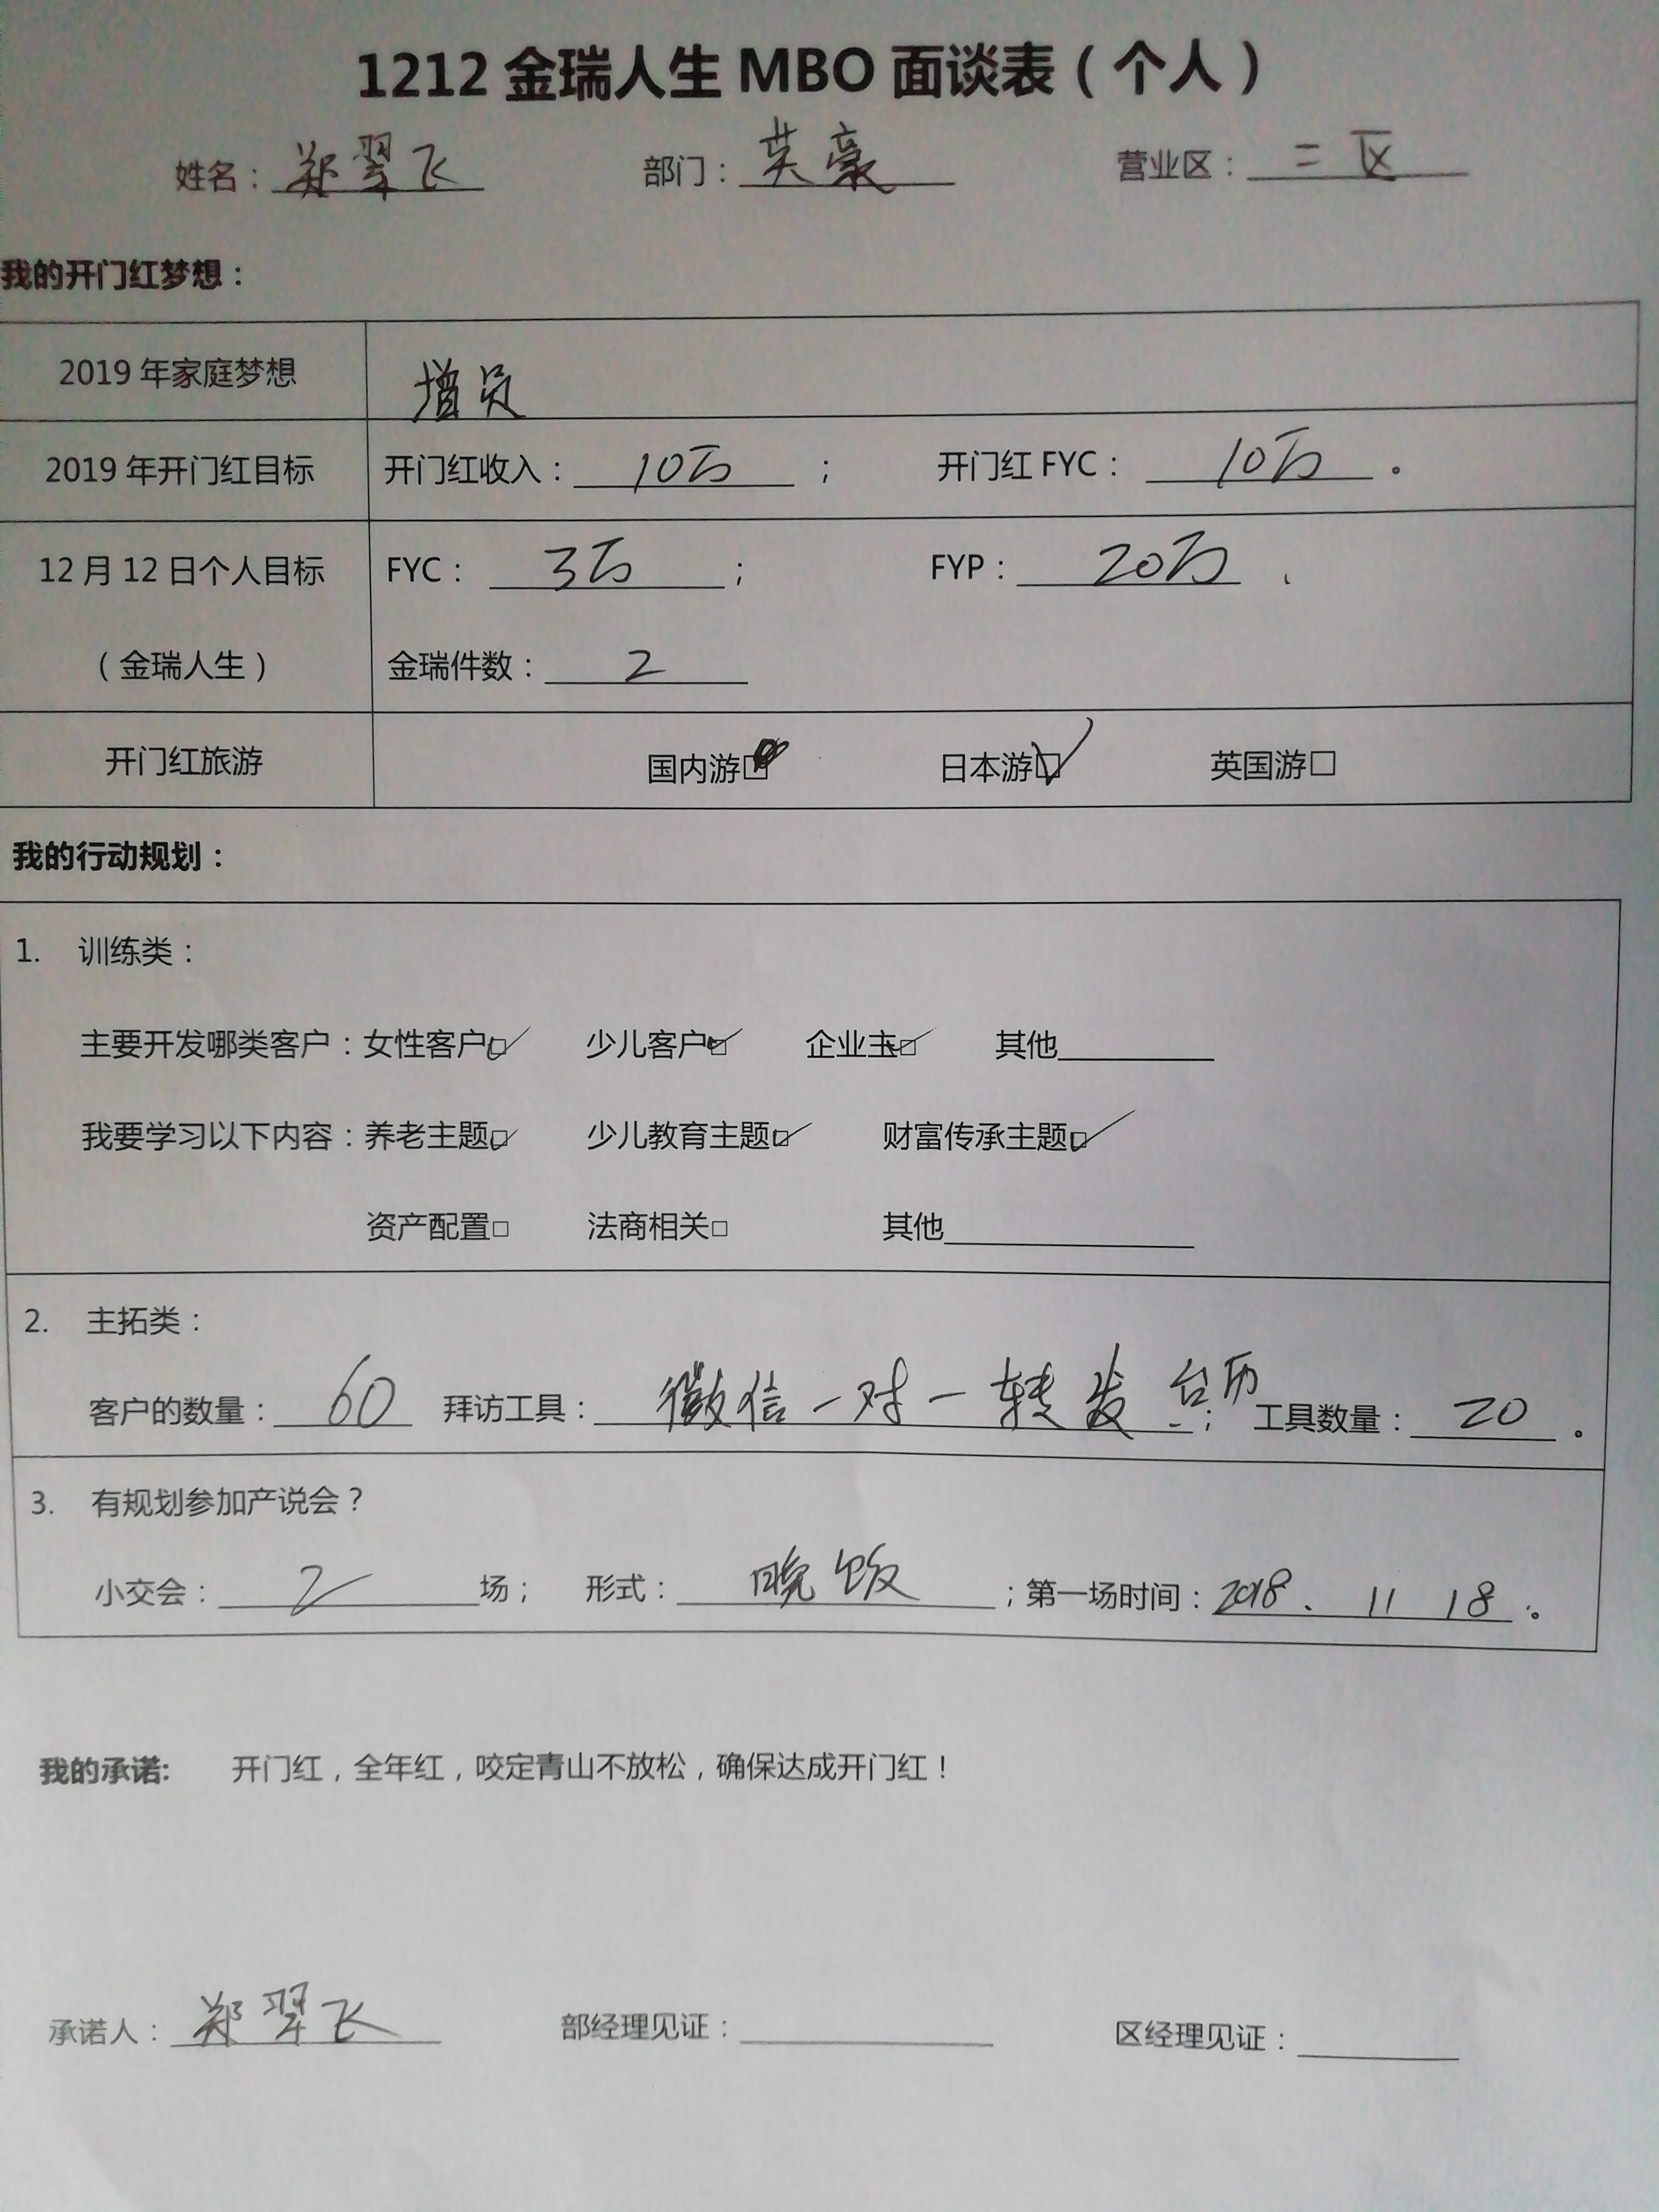 1212 金瑞人生 MBO 面谈表（个人）
姓名：郑翠飞 部门：英豪 营业区：二区
我的开门红梦想：
2019 年家庭梦想 增员
2019 年开门红目标 开门红收入：10万； 开门红 FYC：10万。
12 月 12 日个人目标 FYC：3万； FYP：20万
（金瑞人生） 金瑞件数：2
开门红旅游 国内游☑ 日本游☑ 英国游□
我的行动规划：
1. 训练类：
主要开发哪类客户：女性客户☑ 少儿客户☑ 企业主☑ 其他
我要学习以下内容：养老主题☑ 少儿教育主题☑ 财富传承主题☑
资产配置□ 法商相关□ 其他
2. 主拓类：
客户的数量：60 拜访工具：微信一对一转发 台历； 工具数量：20。
3. 有规划参加产说会？
小交会：2场； 形式：晚饭；第一场时间：2018. 11 18。
我的承诺: 开门红，全年红，咬定青山不放松，确保达成开门红！
承诺人：郑翠飞 部经理见证： 区经理见证：